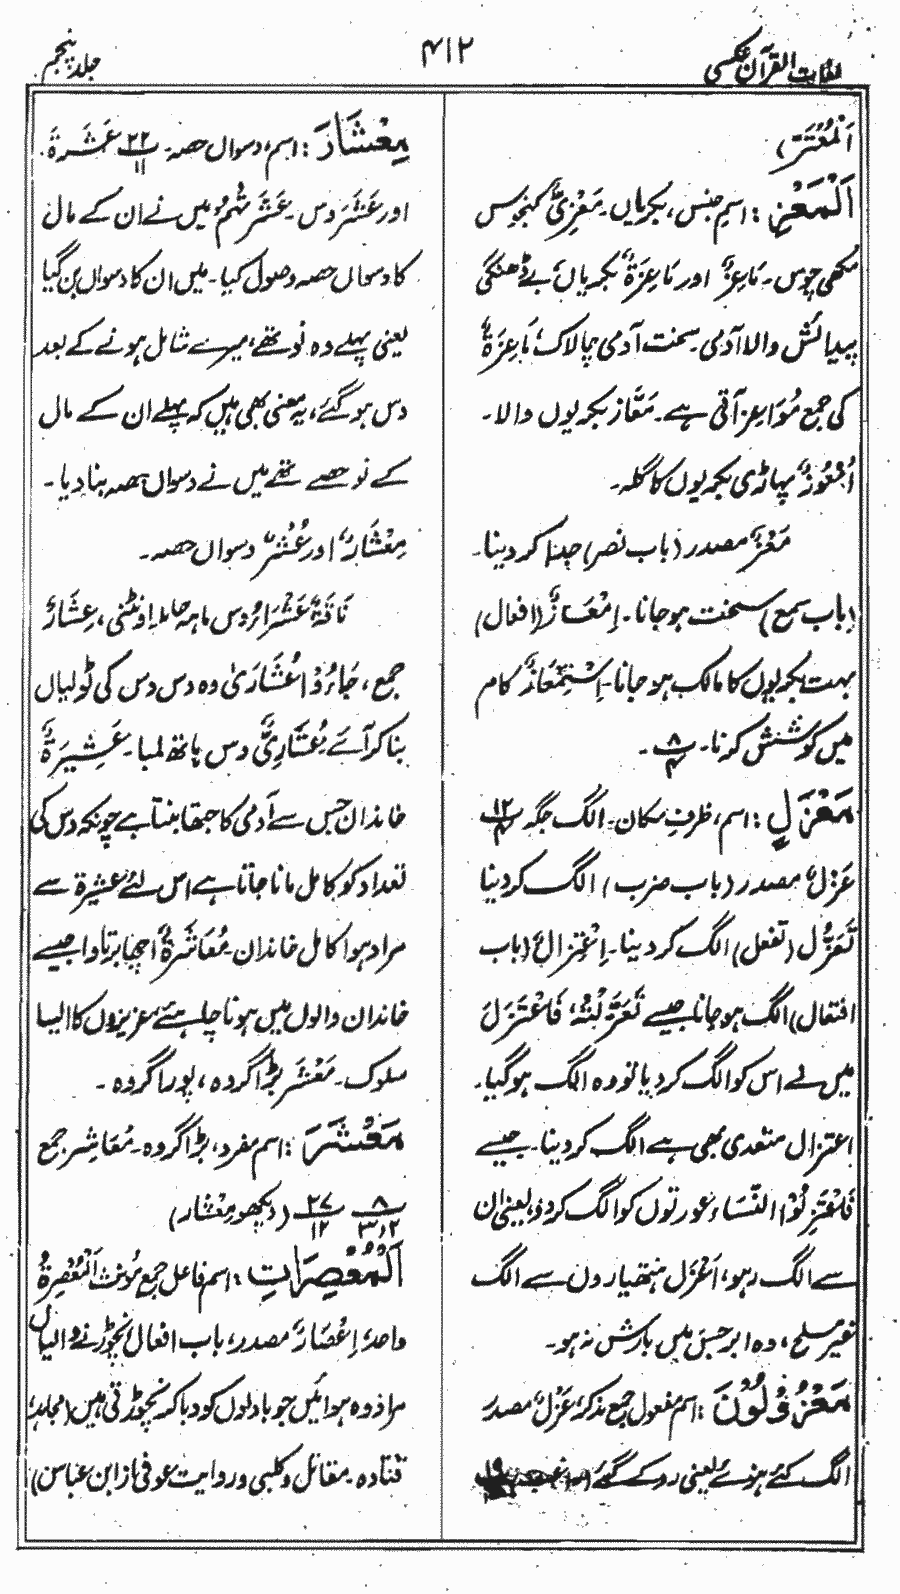 لغات القرآن عکسی
۴۱۲
جلد پنجم
اَلْمُعْتَرَّ)
اَلْمَعْزِ : اسمِ جنس، بکریاں۔ مَعْزِیٌّ کنجوس
مکھی چوس۔ مَاعِزٌ اور مَاعِزَۃٌ بکریاں بے ڈھنگی
پیدائش والا آدمی۔ سخت آدمی چالاک، مَاعِزَۃٌ
کی جمع مُوَاعِز آتی ہے۔ مَعَّاز بکریوں والا۔
اُمْعُوْزٌ پہاڑی بکریوں کا گلہ۔
مَعْزٌ مصدر (باب نصر) جدا کر دینا۔
(باب سمع) سخت ہو جانا۔ اِمْعَازٌ (افعال)
بہت بکریوں کا مالک ہو جانا۔ اِسْتِمْعَازٌ کام
میں کوشش کرنا۔ ۸/۴ ۔
مَعْزَلٍ : اسم، ظرفِ مکان۔ الگ جگہ ۱۲/۴
عَزْلٌ مصدر (باب ضرب) الگ کر دینا
تَعَزُّل (تفعل) الگ کر دینا۔ اِعْتِزَالٌ (باب
افتعال) الگ ہو جانا جیسے تَعَزَّلْتُہٗ فَاعْتَزَلَ
میں نے اس کو الگ کر دیا تو وہ الگ ہو گیا۔
اعتزال متعدی بھی ہے الگ کر دینا۔ جیسے
فَاعْتَزِلُوْا النِّسَاءَ عورتوں کو الگ کر دو، یعنی ان
سے الگ رہو، اَعْزَل ہتھیاروں سے الگ
غیر مسلح، وہ ابر جس میں بارش نہ ہو۔
مَعْزُوْلُوْنَ : اسم مفعول جمع مذکر، عَزْلٌ مصدر
الگ کئے ہوئے یعنی روکے گئے ۱۹
مِعْشَارَ : اسم، دسواں حصہ۔ ۲۲/۱۱ عَشَرَۃَ
اور عَشَرَ دس۔ عَشَرْتُہُمْ میں نے ان کے مال
کا دسواں حصہ وصول کیا۔ میں ان کا دسواں بن گیا
یعنی پہلے وہ نو تھے، میرے شامل ہونے کے بعد
دس ہو گئے، یہ معنی بھی ہیں کہ پہلے ان کے مال
کے نو حصے تھے میں نے دسواں حصہ بنا دیا۔
مِعْشَارٌ اور عُشْرٌ دسواں حصہ۔
نَاقَۃٌ عَشْرَاءُ دس ماہہ حاملہ اونٹنی، عِشَارٌ
جمع، جَاءُوْا عُشَارٰی وہ دس دس کی ٹولیاں
بنا کر آئے عُشَارِیٌّ دس ہاتھ لمبا۔ عَشِیْرَۃٌ
خاندان جس سے آدمی کا جتھا بنتا ہے چونکہ دس کی
تعداد کو کامل مانا جاتا ہے اس لئے عشیرۃ سے
مراد ہوا کامل خاندان۔ مُعَاشَرَۃٌ اچھا برتاوا جیسے
خاندان والوں میں ہونا چاہئے، عزیزوں کا ایسا
سلوک۔ مَعْشَر بڑا گروہ، پورا گروہ۔
مَعْشَرَ : اسم مفرد، بڑا گروہ۔ مَعَاشِر جمع
۸/۳،۲ ۲۷/۱۲ (دیکھو مِعْشَار)
اَلْمُعْصِرَاتِ : اسم فاعل جمع مؤنث اَلْمُعْصِرَۃُ
واحد، اِعْصَارٌ مصدر، باب افعال نچوڑنے والیاں
مراد وہ ہوائیں جو بادلوں کو دبا کر نچوڑتی ہیں (مجاہد،
قتادہ۔ مقاتل و کلبی و روایت عوفی از ابن عباس)